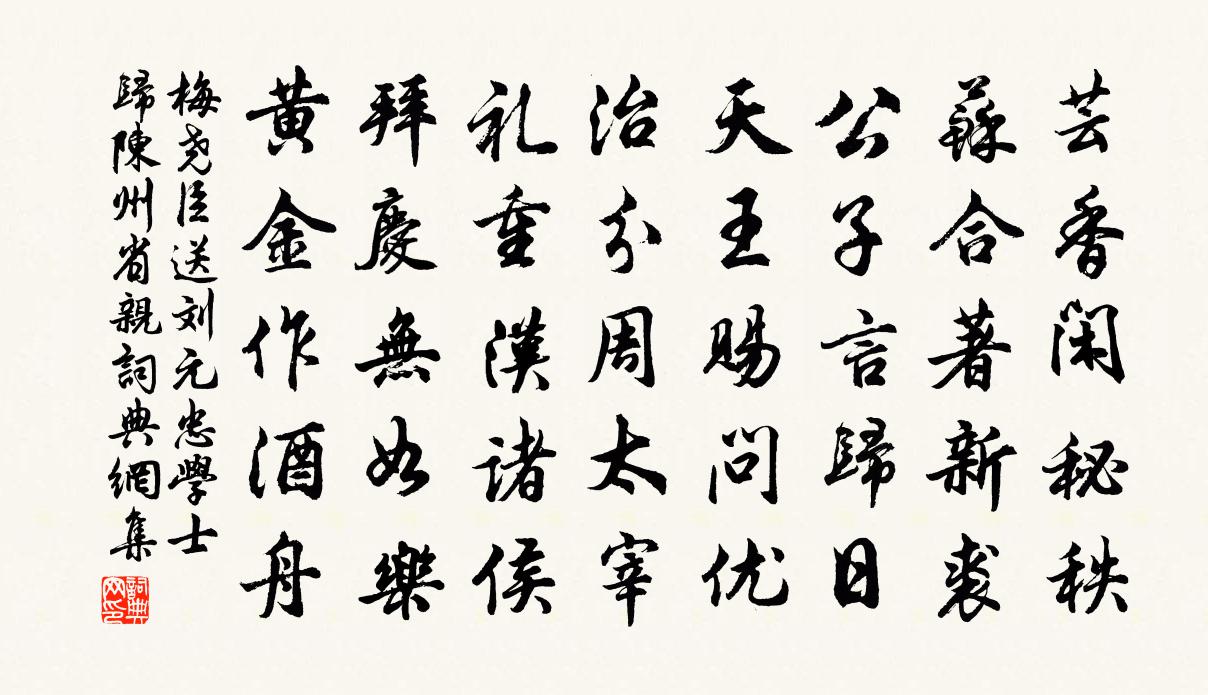 芸香閑秘秩
蘇合著新裘
公子言歸日
天王賜問优
治分周太宰
礼重漢諸侯
拜慶無如樂
黃金作酒舟
梅尧臣送刘元忠學士
歸陳州省親詞典網集
詞典
网印